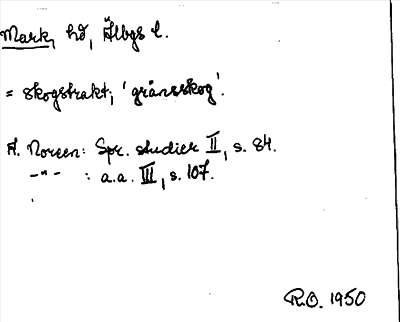 Mark, hd, Älbgs l.
= skogstrakt, 'gränsskog'.
A. Noreen: Spr. studier II, s. 84.
–"– : a.a. III, s. 107.
R.O. 1950